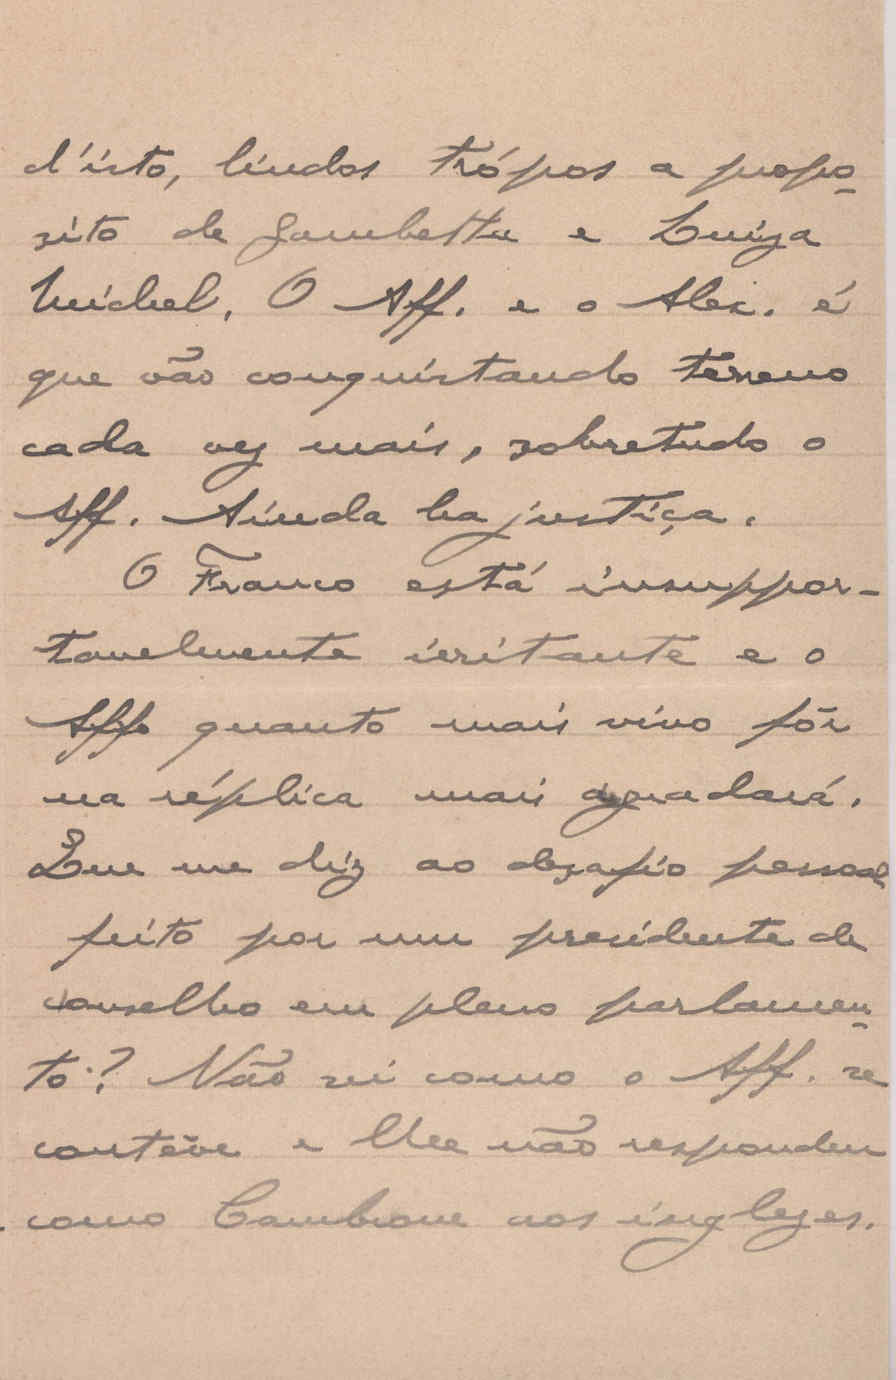 d'isto, lindos trópos a propo-
sito de Gambetta e Luiza
Michel. O Aff. e o Alex. é
que vão conquistando terreno
cada vez mais, sobretudo o
Aff. Ainda ha justiça.
O Franco está insuppor-
tavelmente irritante e o
Affo quanto mais vivo fôr
na réplica mais agradará.
Que me diz ao desafio pessoal
feito por um presidente de
conselho em pleno parlamen-
to? Não sei como o Aff. se
contêve e lhe não respondeu
como Cambrone aos inglezes.